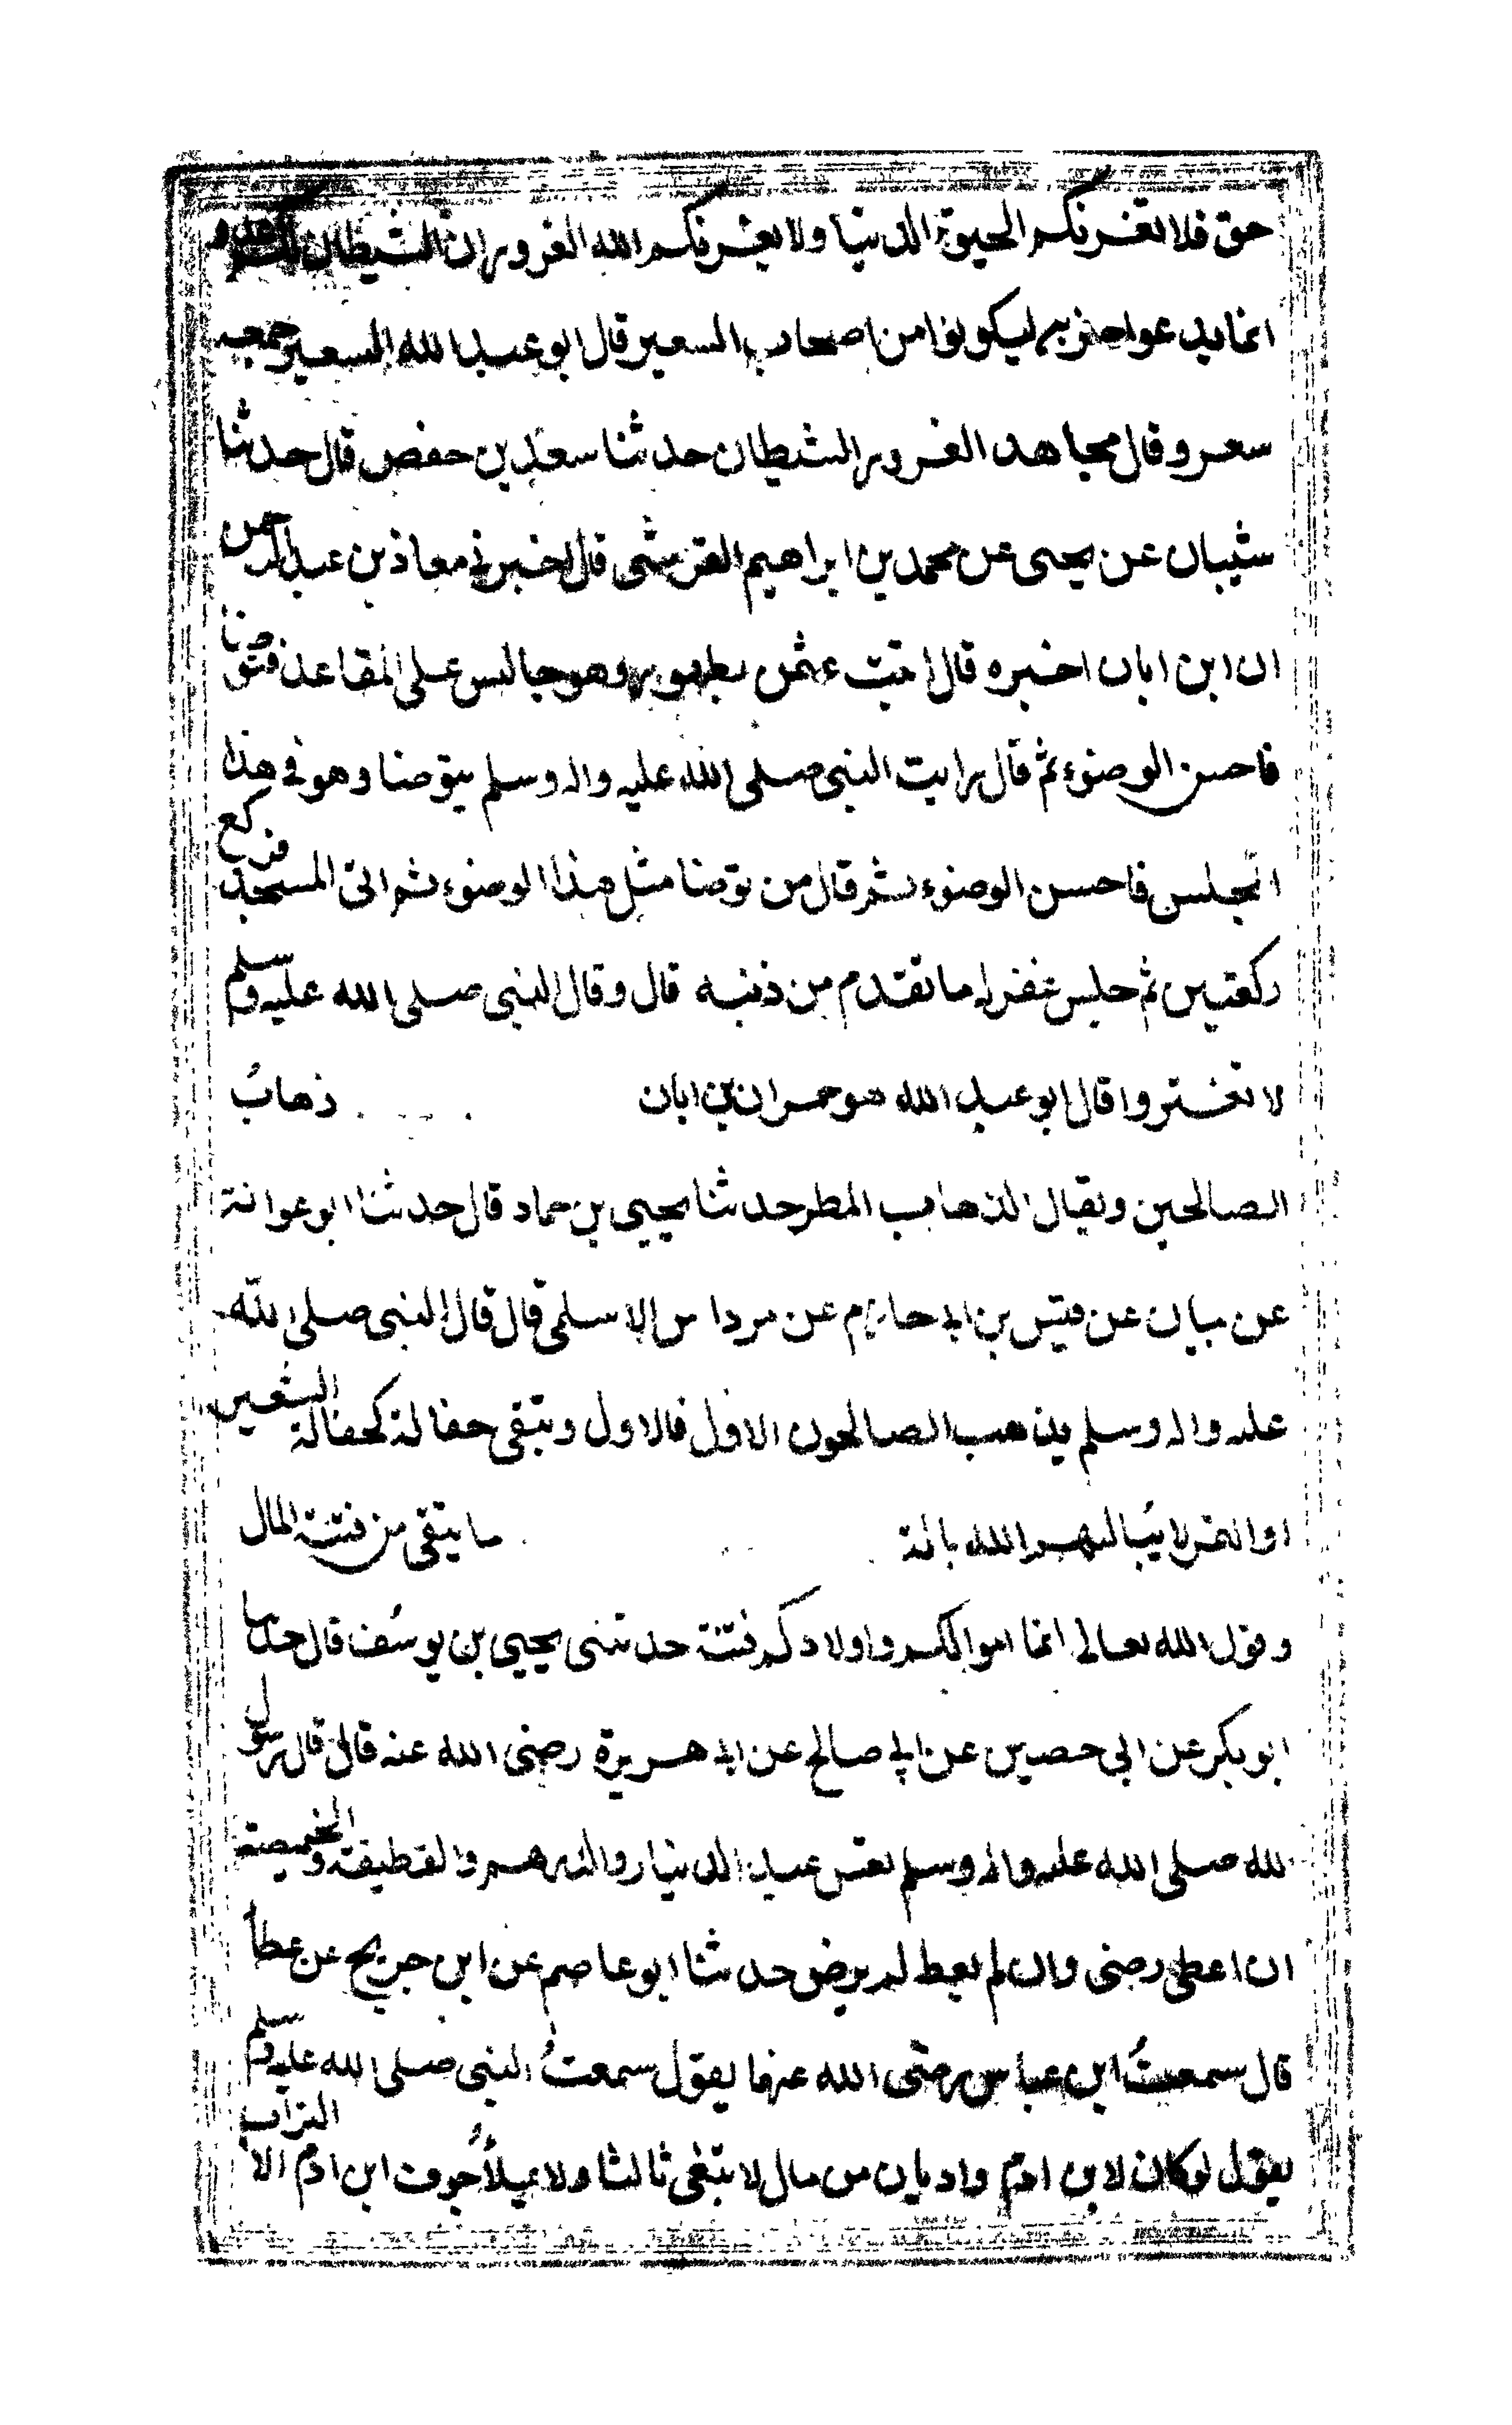 حق فلا تغرنكم الحيوة الدنيا ولا يغرنكم الله الغرور ان الشيطان لكم عدو
انما يدعوا حزبه ليكونوا من اصحاب السعير قال ابو عبد الله السعير جمعه
سعر وقال مجاهد الغرور الشيطان حدثنا سعد بن حفص قال حدثنا
شيبان عن يحيى عن محمد بن ابراهيم القرشى قال اخبرنى معاذ بن عبد الرحمن
ان ابن ابان اخبره قال اتيت عثمن بطهور وهو جالس على المقاعد فتوضا
فاحسن الوضوء ثم قال رايت النبى صلى الله عليه واله وسلم يتوضا وهو فى هذا
المجلس فاحسن الوضوء ثم قال من توضا مثل هذا الوضوء ثم اتى المسجد فركع
ركعتين ثم جلس غفر له ما تقدم من ذنبه قال وقال النبى صلى الله عليه وسلم
لا تغتروا قال ابو عبد الله هو حمران بن ابان ذهابُ
الصالحين ويقال الذهاب المطر حدثنا يحيى بن حماد قال حدثنا ابو عوانة
عن بيان عن قيس بن ابى حازم عن مرداس الاسلمى قال قال النبى صلى الله
عليه واله وسلم يذهب الصالحون الاول فالاول ويتبقى حفالة كحفالة الشعير
او التمر لا يُباليهم الله بالة ما يتقى من فتنة المال
وقول الله تعالى انما اموالكم واولادكم فتنة حدثنى يحيى بن يوسُف قال حدثنا
ابو بكر عن ابى حصين عن ابى صالح عن ابى هريرة رضى الله عنه قال قال رسول
لله صلى الله عليه واله وسلم تعس عبد الدينار والدرهم والقطيفة والخميصة
ان اعطى رضى وان لم يعط لم يرض حدثنا ابو عاصم عن ابن جريج عن عطأ
قال سمعتُ ابن عباس رضى الله عنهما يقول سمعتُ النبى صلى الله عليه وسلم
يقول لو كان لابن ادم واديان من مال لا بتغى ثالثا ولا يملأُ جوف ابن ادم الا التراب